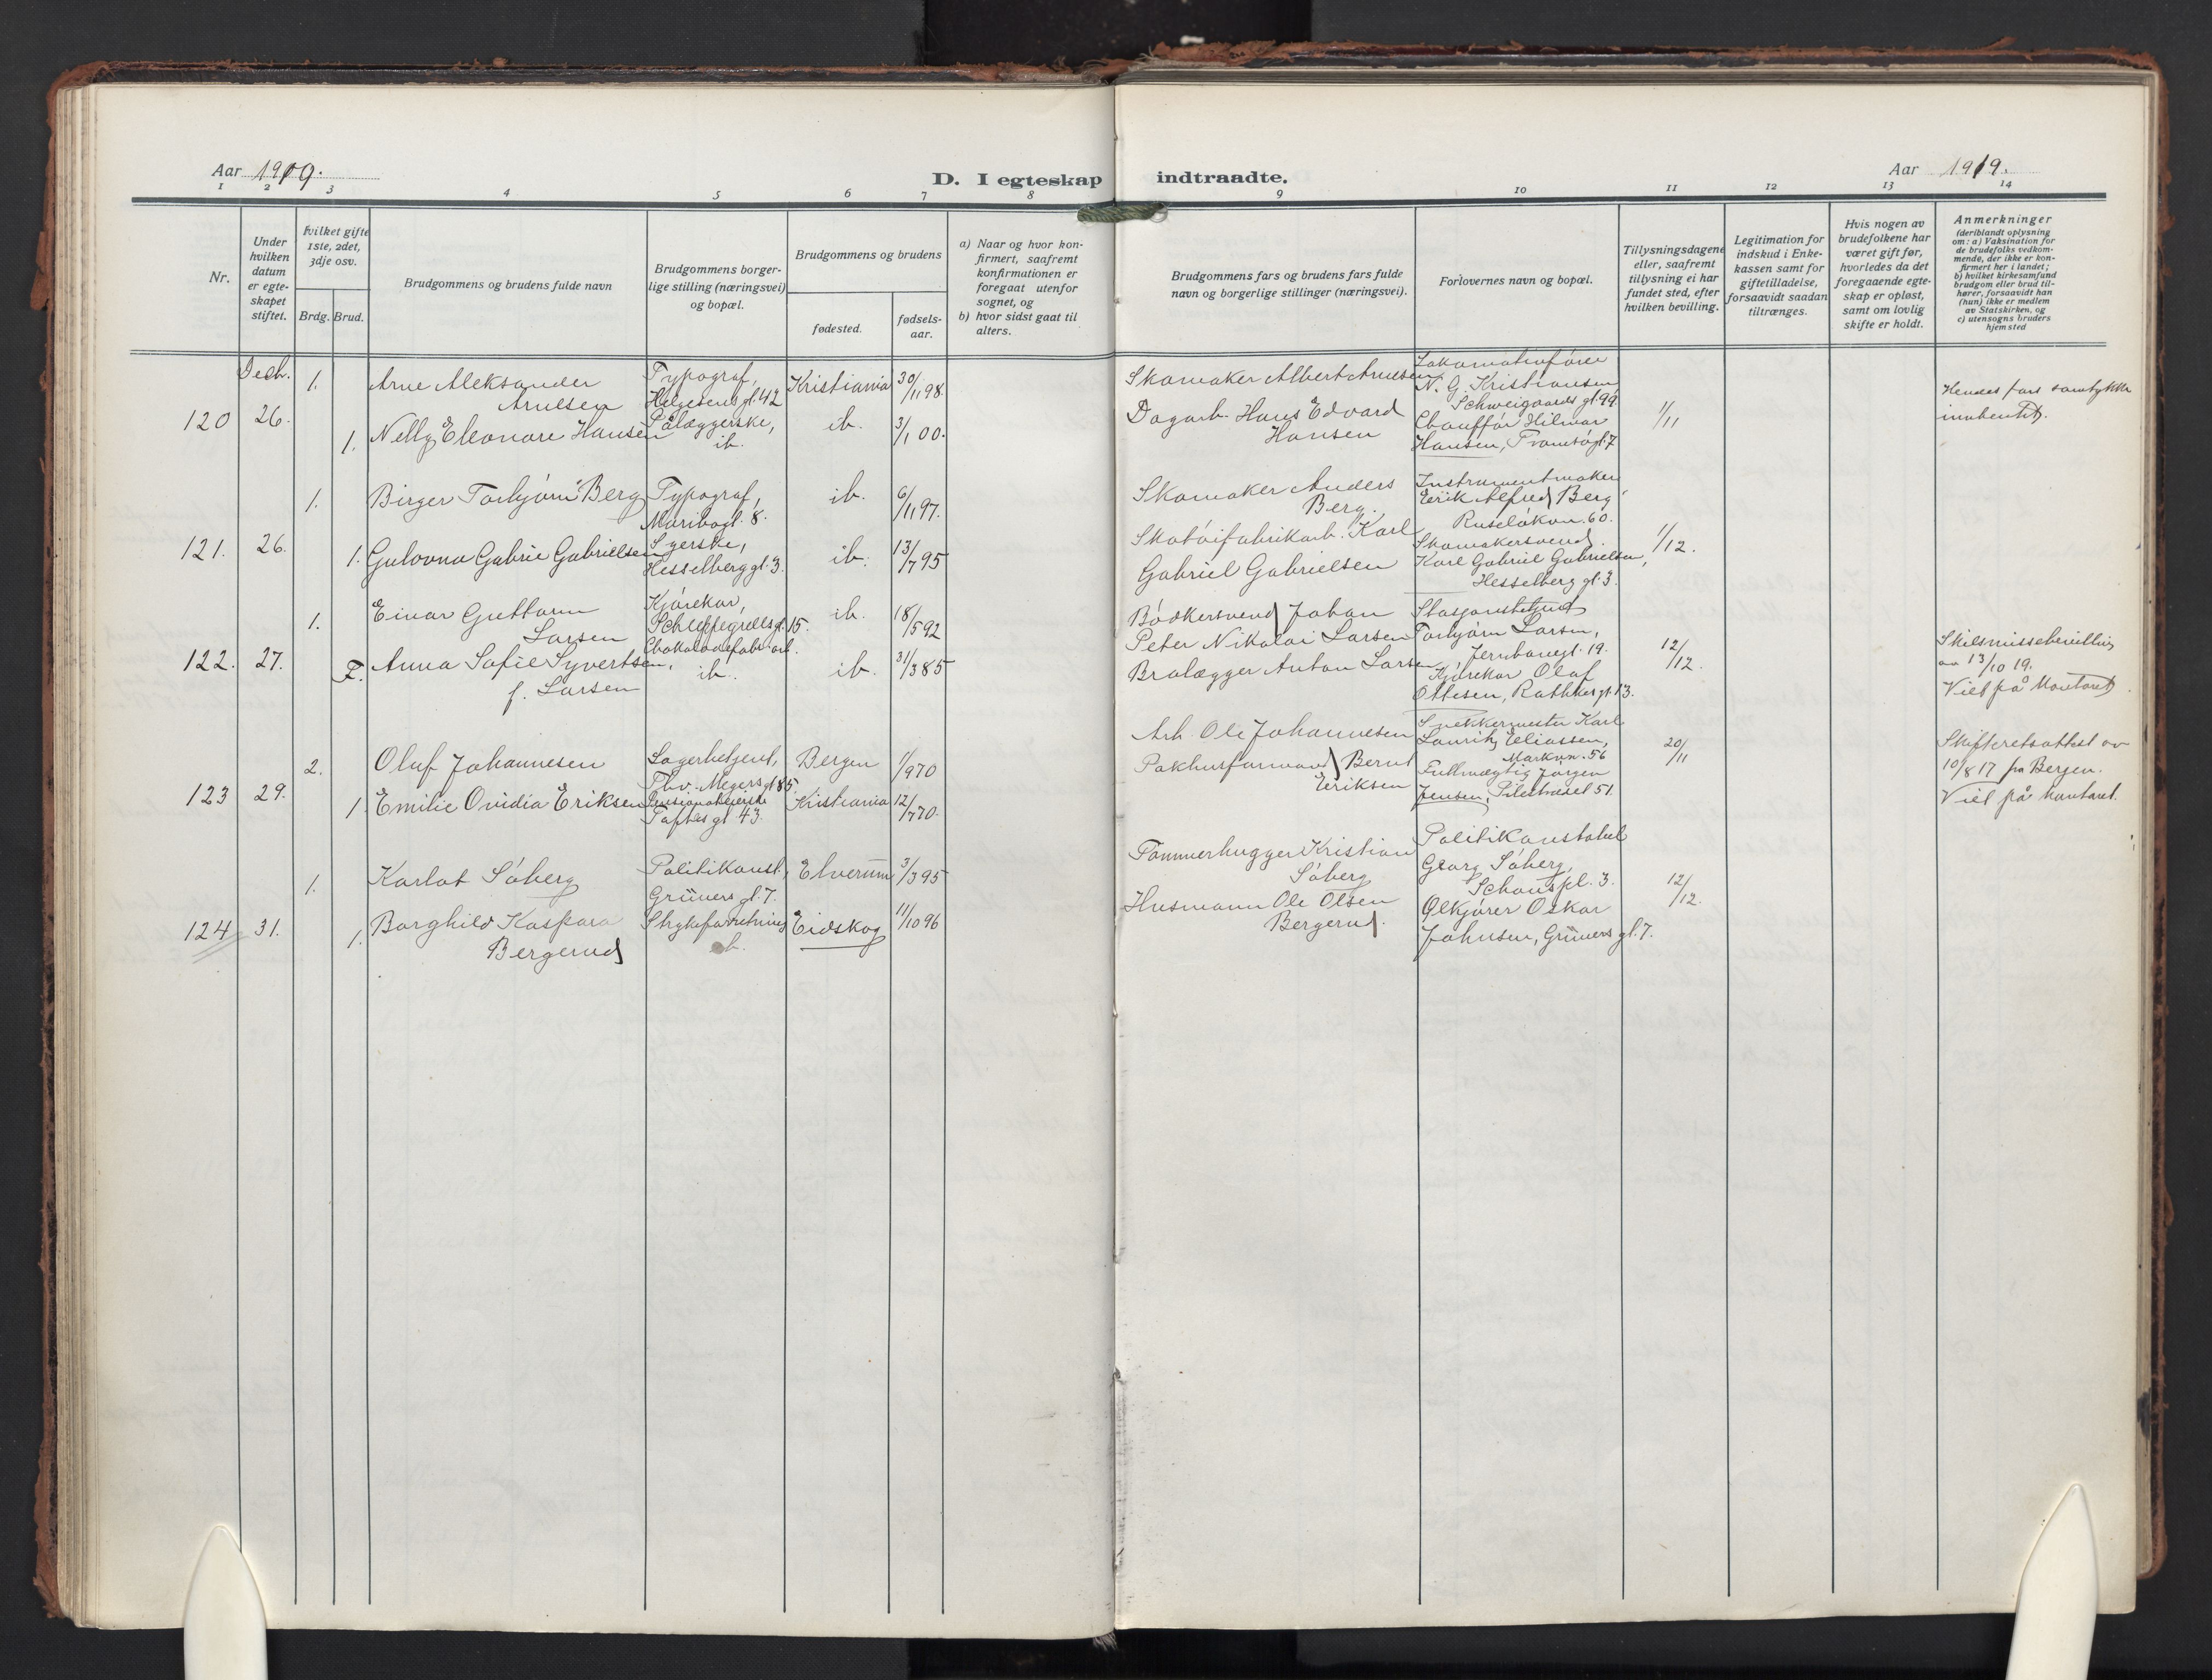 Aar 1919.
D. I egteskap indtraadte.
Aar 1919.
1 2 3 4 5 6 7 8 9 10 11 12 13 14
Nr.
Under hvilken datum er egteskapet stiftet.
Hvilket gifte 1ste, 2det, 3dje osv.
Brdg. Brud.
Brudgommens og brudens fulde navn
Brudgommens borgerlige stilling (næringsvei) og bopæl.
Brudgommens og brudens
fødested.
fødselsaar.
a) Naar og hvor konfirmert, saafremt konfirmationen er foregaat utenfor sognet, og
b) hvor sidst gaat til alters.
Brudgommens fars og brudens fars fulde navn og borgerlige stillinger (næringsvei).
Forlovernes navn og bopæl.
Tillysningsdagene eller, saafremt tillysning ei har fundet sted, efter hvilken bevilling.
Legitimation for indskud i Enkekassen samt for giftetilladelse, forsaavidt saadan tiltrænges.
Hvis nogen av brudefolkene har været gift før, hvorledes da det foregaaende egteskap er opløst, samt om lovlig skifte er holdt.
Anmerkninger
(deriblandt oplysning om: a) Vaksination for de brudefolks vedkommende, der ikke er konfirmert her i landet; b) hvilket kirkesamfund brudgom eller brud tilhører, forsaavidt han (hun) ikke er medlem av Statskirken, og c) utensogns bruders hjemsted
Decb.
120 26.
1. Arne Aleksander Arnesen
Typograf, Helgesens gt. 42
Kristiania 30/11 98.
1. Nelly Eleonore Hansen
Pålæggerske, ib.
ib. 3/1 00.
Skomaker Albert Arnesen
Dagarb. Hans Edvard Hansen
Lokomotivfører N. G. Kristiansen Schweigaards gt. 99
Chauffør Hilmar Hansen, Tromsøgt. 7
1/11
Hendes fars samtykke innhentet.
121. 26.
1. Birger Torbjørn Berg
Typograf, Maribogt. 8.
ib. 6/11 97.
1. Gulovna Gabrie Gabrielsen
Syerske, Hesselberg gt. 3.
ib. 13/7 95
Skomaker Anders Berg.
Skotøifabrikarb. Karl Gabriel Gabrielsen
Instrumentmaker Erik Alfred Berg Ruseløkvn. 60.
Skomakersvend Karl Gabriel Gabrielsen, Hesselberg gt. 3.
1/12.
122. 27.
1. Einar Guttorm Larsen
Kjørekar, Schleppegrells gt. 15.
ib. 18/5 92
F. Anna Sofie Syvertsen, f. Larsen
Chokoladefabr. arb. ib.
ib. 31/3 85
Bødkersvend Johan Peter Nikolai Larsen
Brolægger Anton Larsen
Torbjørn Larsen, Jernbanegt. 19.
Kjørekar Olaf Ottesen, Rathkes gt. 13.
12/12.
Skilsmissebevilling av 13/10 19.
Viet på kontoret.
123 29.
2. Oluf Johannesen
Lagerbetjent, Thv. Meyers gt 85.
Bergen 1/9 70
1. Emilie Ovidia Eriksen
Toftes gt 43.
Kristiania 12/7 70.
Arb. Ole Johannesen
Pakhusformand Bernt Eriksen
Snekkermester Karl Lauritz Eliassen, Markvn. 56
Fullmægtig Jørgen Jensen, Pilestrædet 51.
20/11
Skifteretsattest av 10/8 17 fra Bergen.
Viet på kontoret.
124 31.
1. Karlot Søberg
Politikonst., Grüners gt. 7.
Elverum 3/3 95
1. Borghild Kaspara Bergerud
Strykeforretning ib.
Eidskog 11/10 96
Tømmerhugger Kristian Søberg
Husmann Ole Olsen Bergerud.
Politikonstabel Georg Søberg, Schous pl. 3.
Ølkjører Oskar Johnsen, Grüners gt. 7.
12/12.